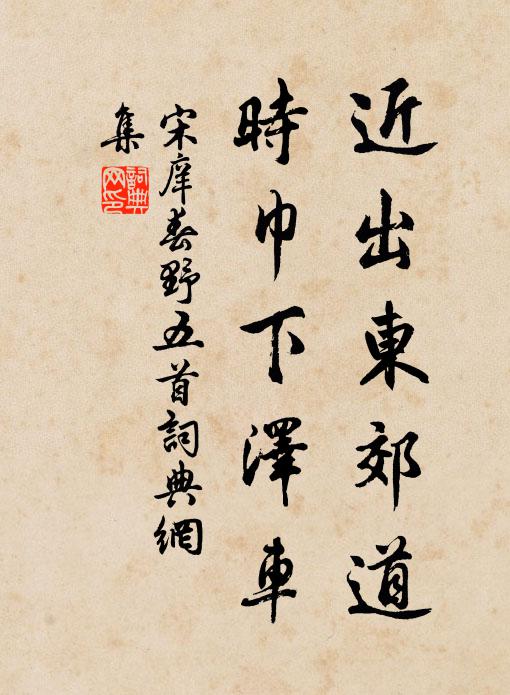 近出東郊道
時巾下澤車
宋庠春野五首詞典網
集
詞典网印